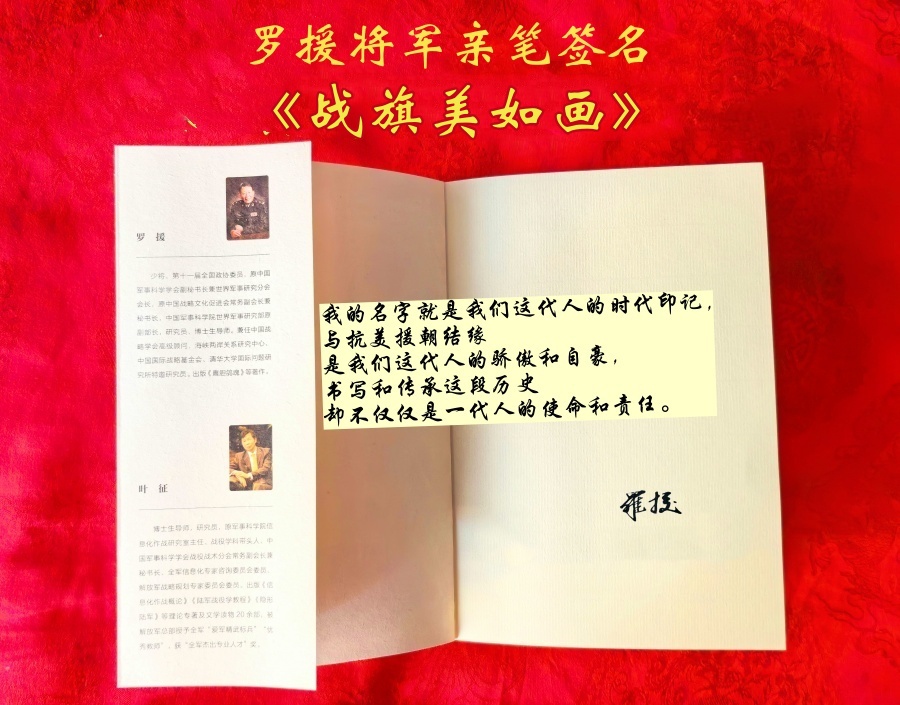 罗援将军亲笔签名
《战旗美如画》
罗 援
少将，第十一届全国政协委员，原中国
军事科学学会副秘书长兼世界军事研究分会
会长，原中国战略文化促进会常务副会长兼
秘书长，中国军事科学院世界军事研究部原
副部长，研究员，博士生导师。兼任中国战
略学会高级顾问、海峡两岸关系研究中心、
中国国际战略基金会、清华大学国际问题研
究所特邀研究员。出版《鹰胆鸽魂》等著作。
叶 征
博士生导师，研究员，原军事科学院信
息化作战研究室主任，战役学科带头人，中
国军事科学学会战役战术分会常务副会长兼
秘书长，全军信息化专家咨询委员会委员，
解放军战略规划专家委员会委员，出版《信
息化作战概论》《陆军战役学教程》《隐形
陆军》等理论专著及文学读物20余部，被
解放军总部授予全军“爱军精武标兵”“优
秀教师”，获“全军杰出专业人才”奖。
我的名字就是我们这代人的时代印记，
与抗美援朝结缘
是我们这代人的骄傲和自豪，
书写和传承这段历史
却不仅仅是一代人的使命和责任。
羅援